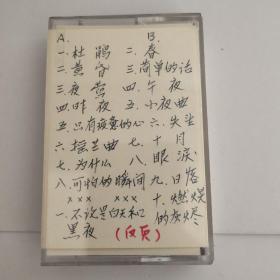 A.
一.杜鹃
二.黄昏
三.夜莺
四.昨夜
五.只有疲惫的心
六.摇兰曲
七.为什么
八.可怕的瞬间
××× ×××
一.不说是白天和
黑夜
B.
二.春
三.简单的话
四.午夜
五.小夜曲
六.失尘
七.十月
八.眼泪
九.日落
十.燃烧
的灰烬
(反页)